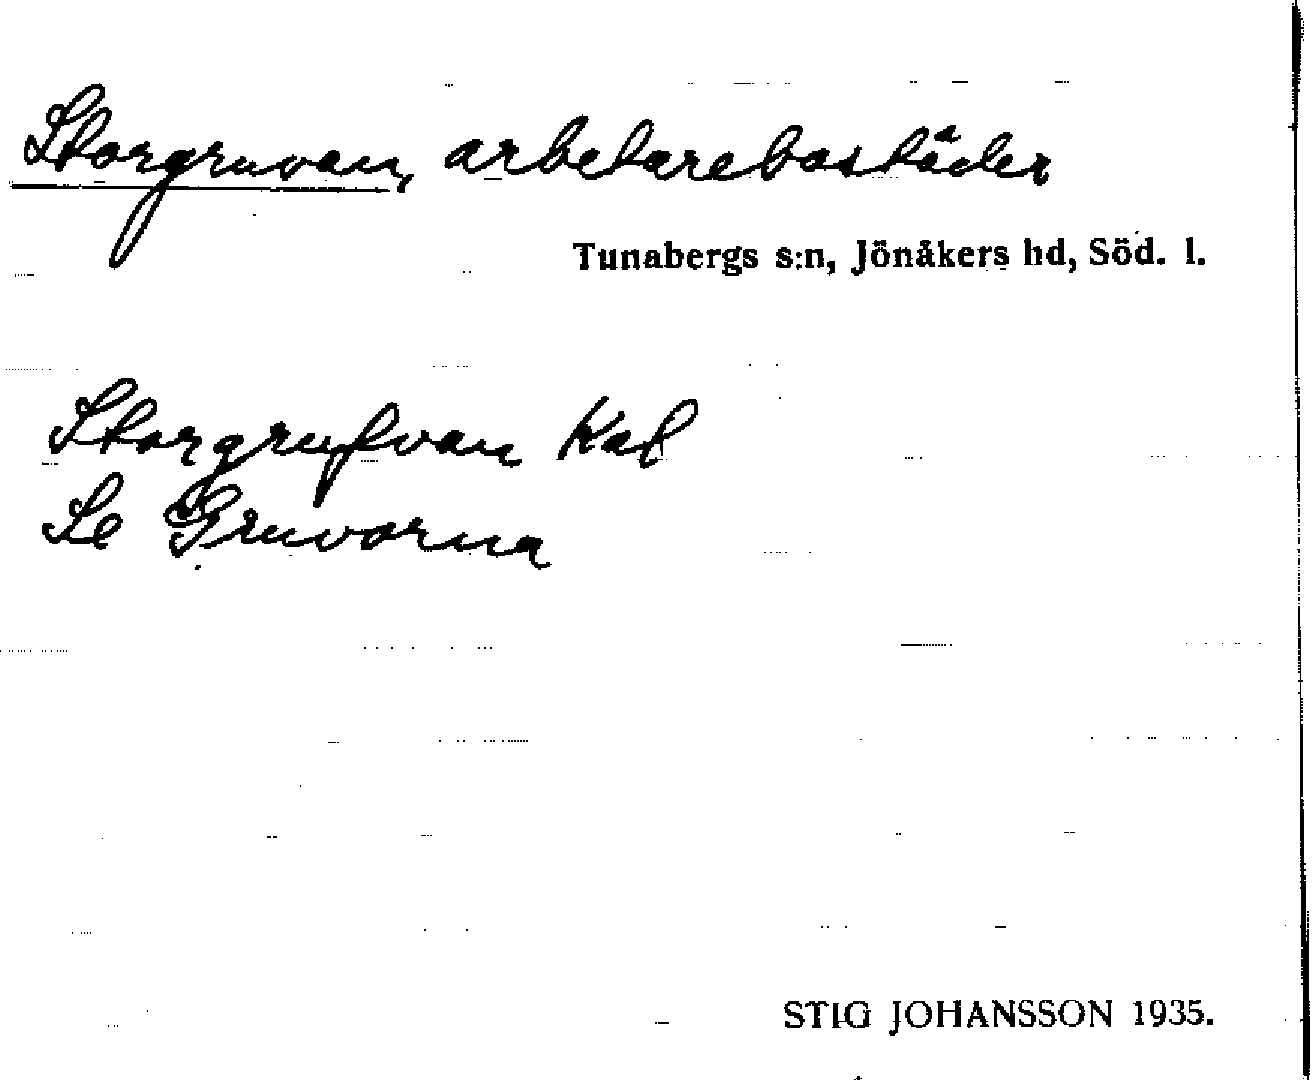 Storgruvan, arbetarebostäder
Tunabergs s:n, Jönåkers hd, Söd. l.
Storgrufvan Kal
Se Gruvorna
STIG JOHANSSON 1935.